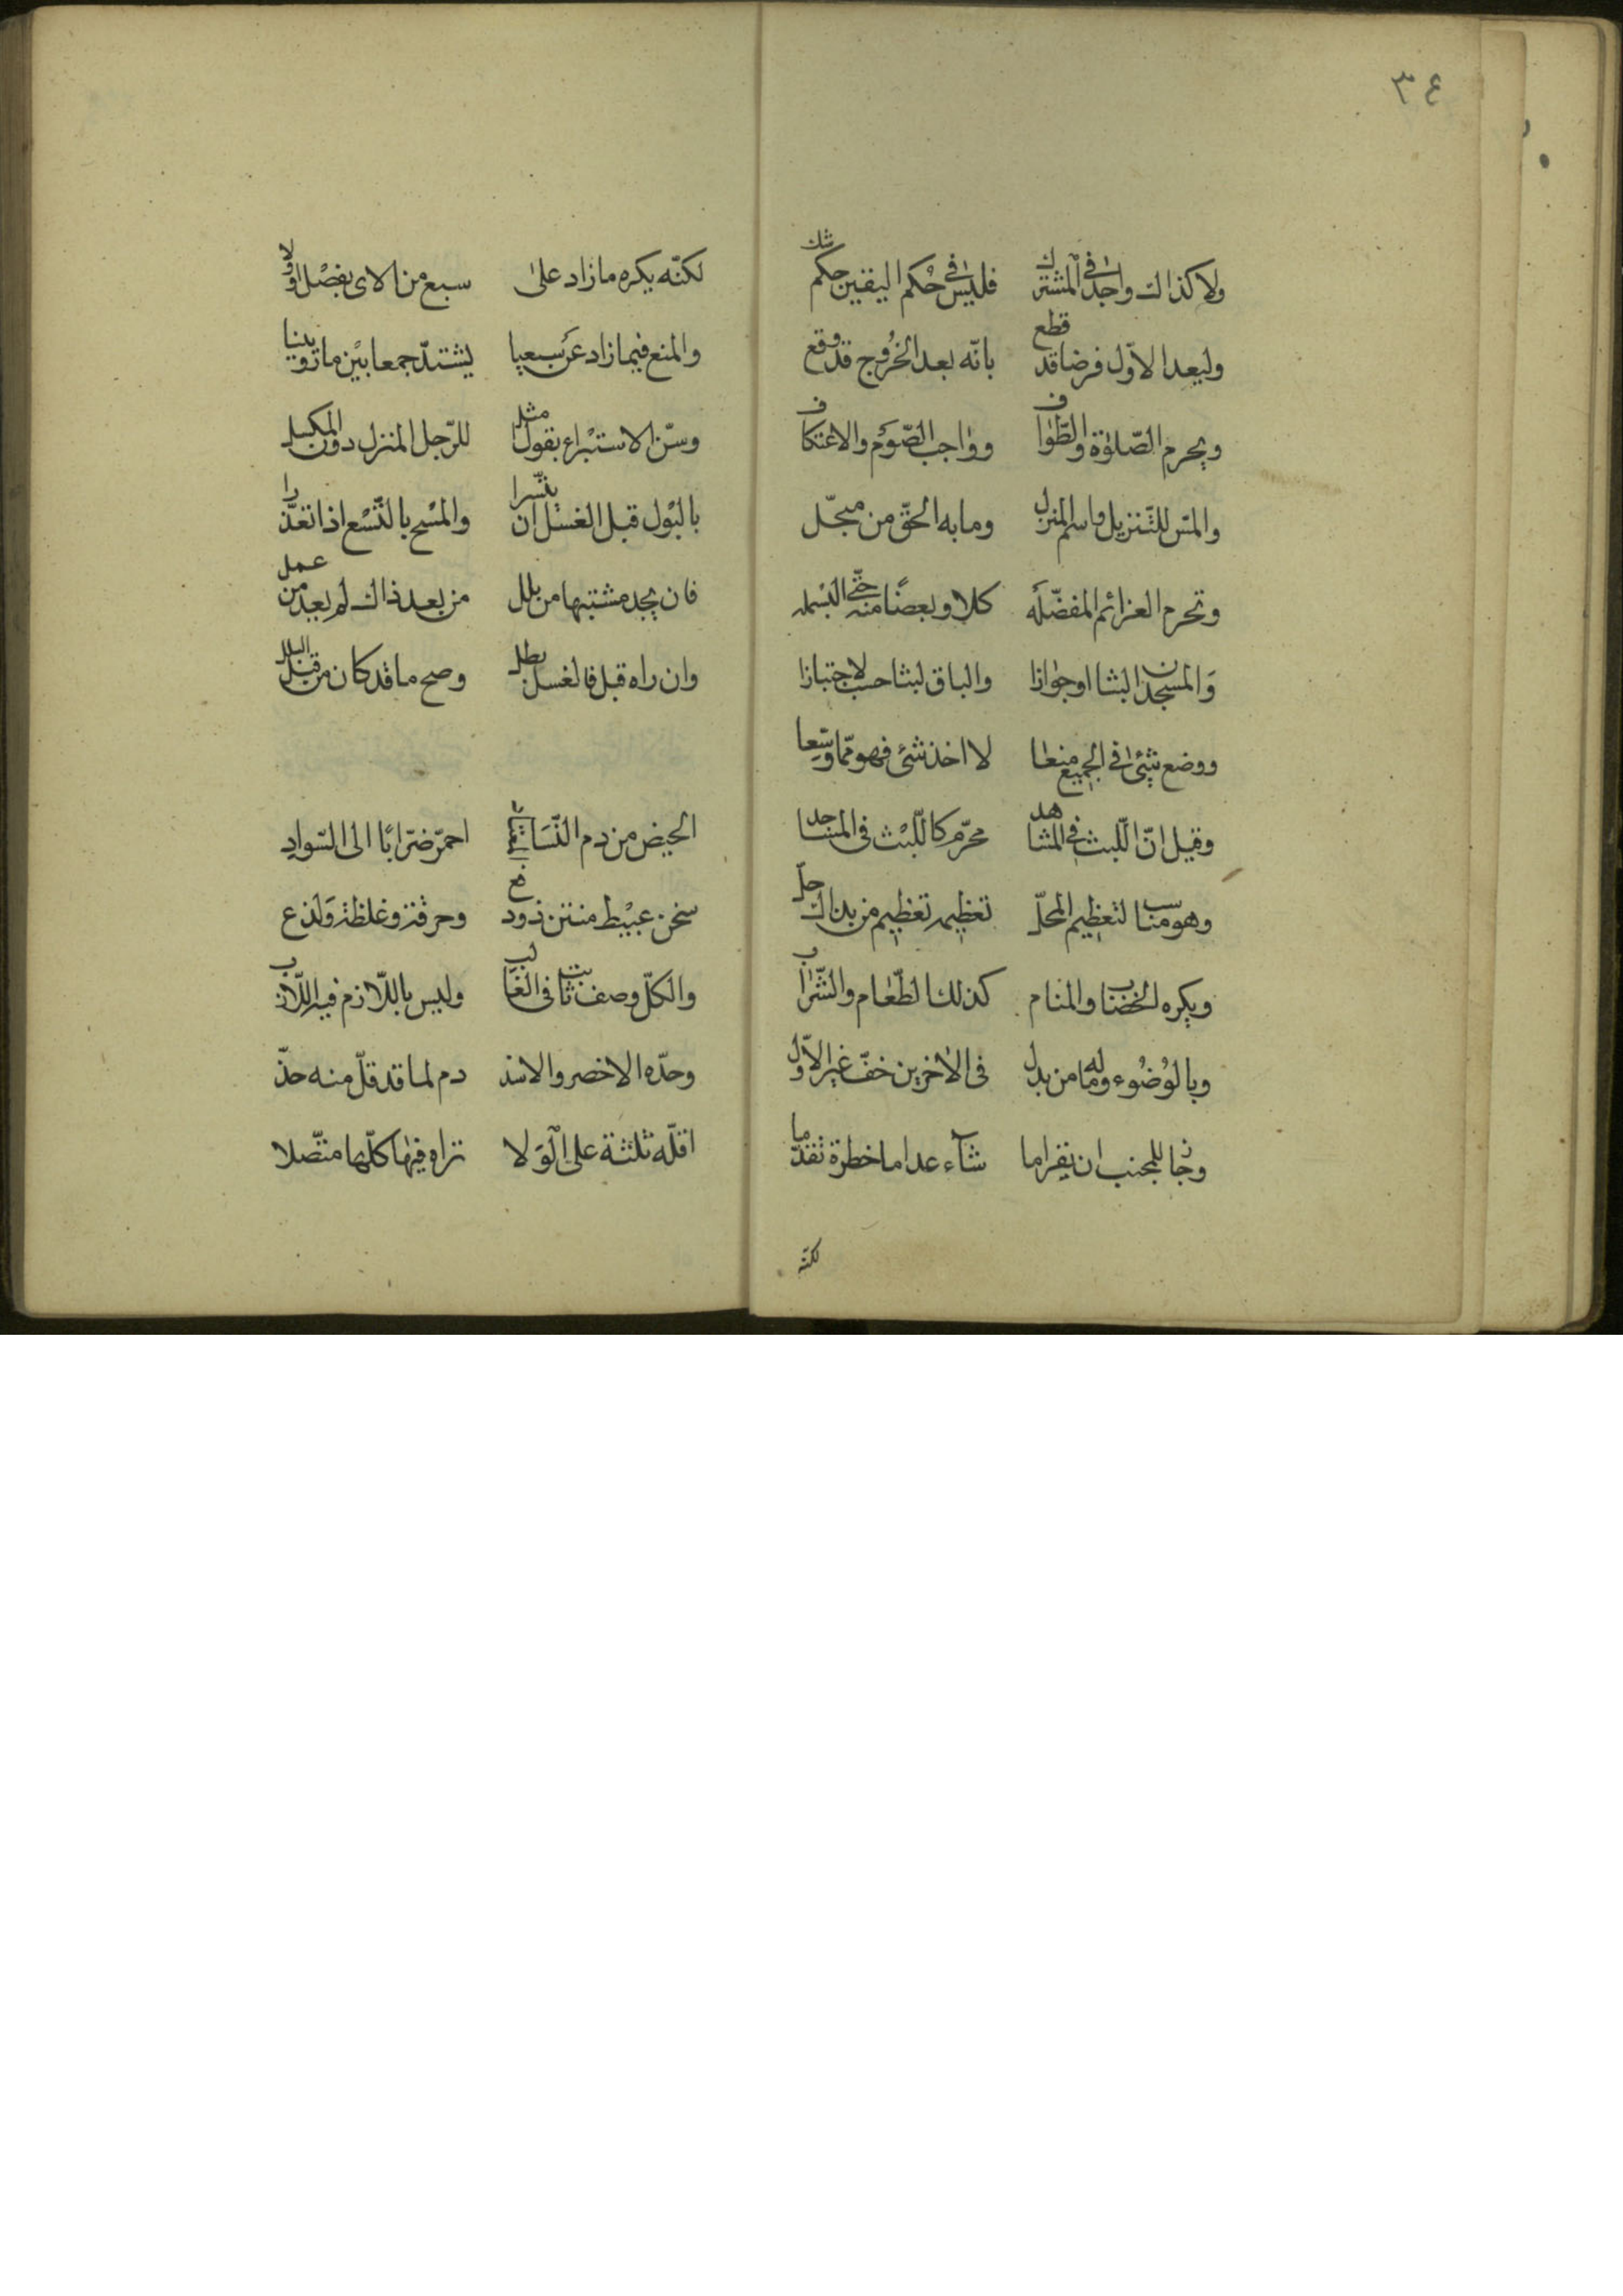 ٣٤
ولا كذالك واجدا في المشترك فليس في حكم اليقين حكم شك
وليعد الاوّل فرضا قد قطع بانّه بعد الخُرُوج قد وقع
ويحرم الصّلوٰة والطّواف وواجب الصّوم والاعتكاف
والمسّ للتّنزيل واسم المنزل وما به الحقّ من مبجّل
وتحرم العزائم المفضّله كلا وبعضًا منه حتّى البسمله
وَالمسجدان لبثا او جوازا والباق لبثا حسب لا اجتيازا
ووضع شئ في الجميع منعا لا اخذ شئ فهو ممّا وسّعا
وقيل انّ اللّبث في المشاهد محرّم كاللّبْث في المساجد
وهو مناسب لتعظيم المحلّ تعظيمه تعظيم من بذاك حلّ
ويكره الخضاب والمنام كذلك الطّعام والشّراب
وبالوُضُوء وله ما من بدل في الاخرين خفّ غير الاوّل
وجاز للجنب ان يقرا ما شاء عدا ما خطرة تقدّما
لكنّه
لكنّه يكره ما زاد علىٰ سبع من الاى بفصْل او ولا
والمنع فيما زاد عَن سبعينا يشتدّ جمعا بيْن ما روينا
وسنّ الاستبْراء بقول مثل للرّجل المنزل دون المكسل
بالبْول قبل الغسْل ان تيسّرا والمسْح بالتّسْع اذا تعذّرا
فان يجد مشتبها من بلل من بعد ذاك لم يعد من عمل
وان راه قبل فالغسل بطل وصح ما قد كان من قبل البلل
الحيض من دم النّسَاء احمرّ ضرّابًا الى السّوادِ
سخن عبيْط منتن ذو دفع وحرقة وغلظة وَلذع
والكلّ وصف ثابت في الغالب وليس باللّازم فيه اللّازب
وحدّه الاخصر والاسد دم لما قد قلّ منه حدّ
اقلّه ثلثة على الوَلا تراه فيها كلّها متّصلا